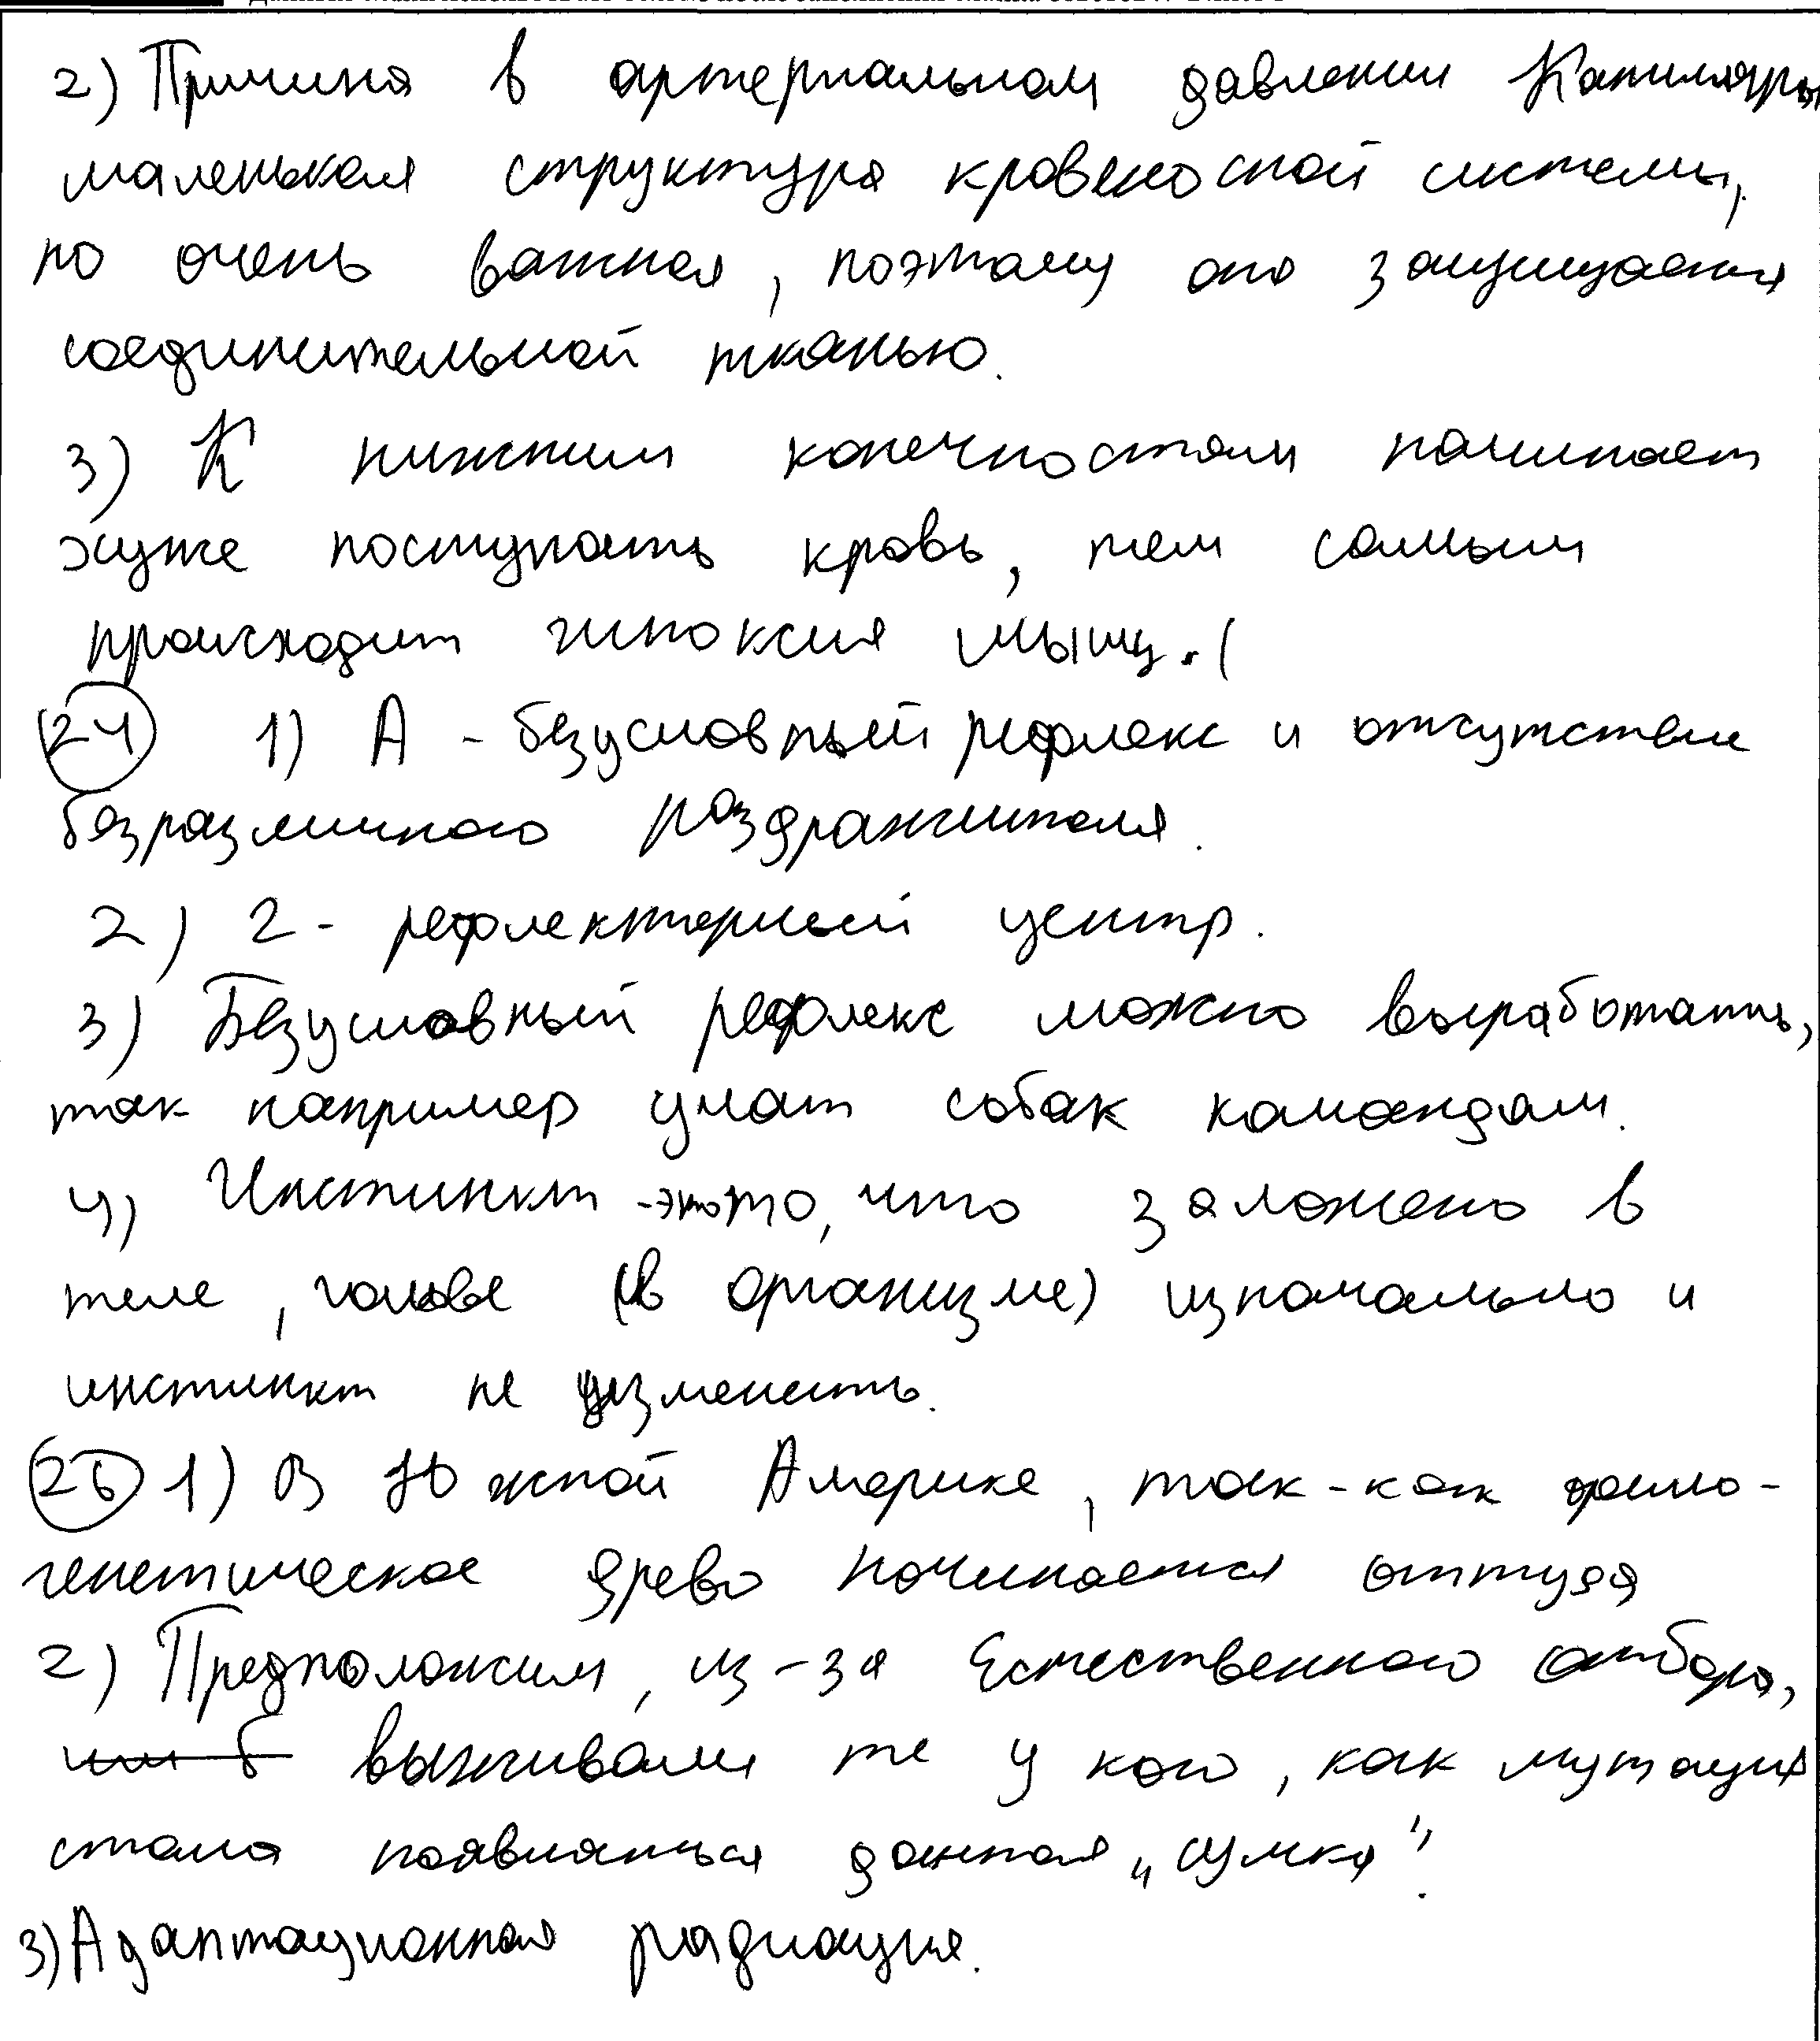 2) Причина в артериальном давлении Капиляры
маленькая структура кровеносной системы,
но очень важная, поэтому она защищается
соединительной тканью.
3) К нижним конечностям начинает
хуже поступать кровь, тем самым
происходит гипоксия мышц.
24 1) А - безусловный рефлекс и отсутствие
безразличного раздражителя.
2) 2 - рефлекторный центр.
3) Безусловный рефлекс можно выработать,
так например учат собак командам.
4) Инстинкт - это то, что заложено в
теле, голове (в организме) изначально и
инстинкт не изменить.
26 1) В Южной Америке, так-как фило-
генетическое древо начинается оттуда
2) Предположим, из-за Естественного отбора,
выживали те у кого, как мутация
стала появляться данная „сумка".
3) Адаптационная радиация.